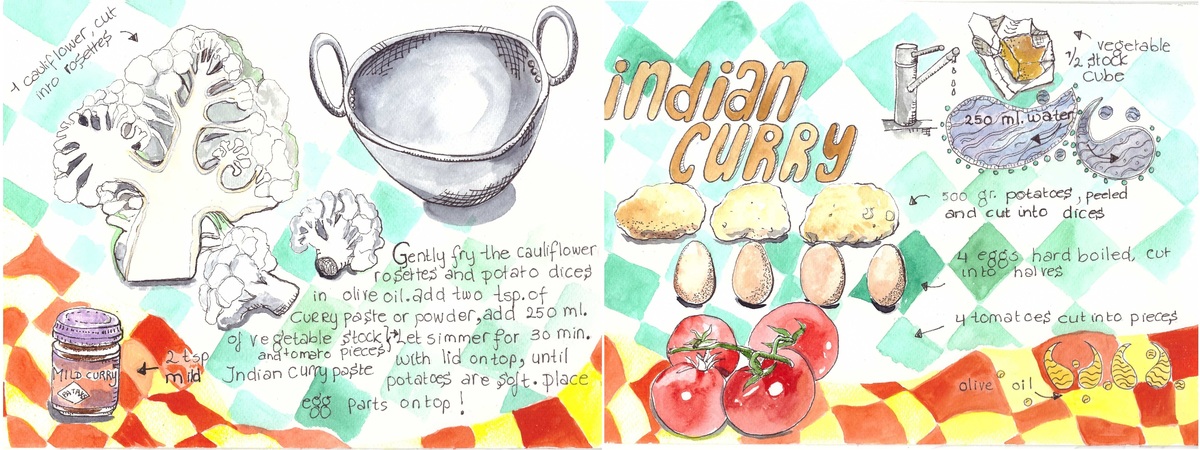 1 cauliflower, cut
into rosettes
Gently fry the cauliflower
rosettes and potato dices
in olive oil. add two tsp. of
curry paste or powder, add 250 ml.
of vegetable stock
and tomato pieces
Let simmer for 30 min.
with lid on top, until
potatoes are soft. place
egg parts on top!
2 tsp
mild
Indian curry paste
MILD CURRY
PATAKS
indian
CURRY
vegetable
1/2 stock
cube
250 ml. water
500 gr. potatoes, peeled
and cut into dices
4 eggs hard boiled, cut
into halves
4 tomatoes cut into pieces
olive oil